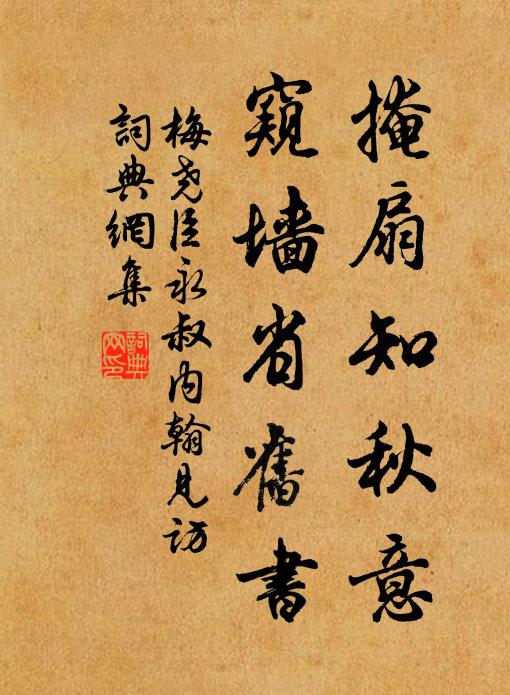 掩扇知秋意
窺墙省舊書
梅堯臣永叔内翰見訪
詞典網集
詞典网印